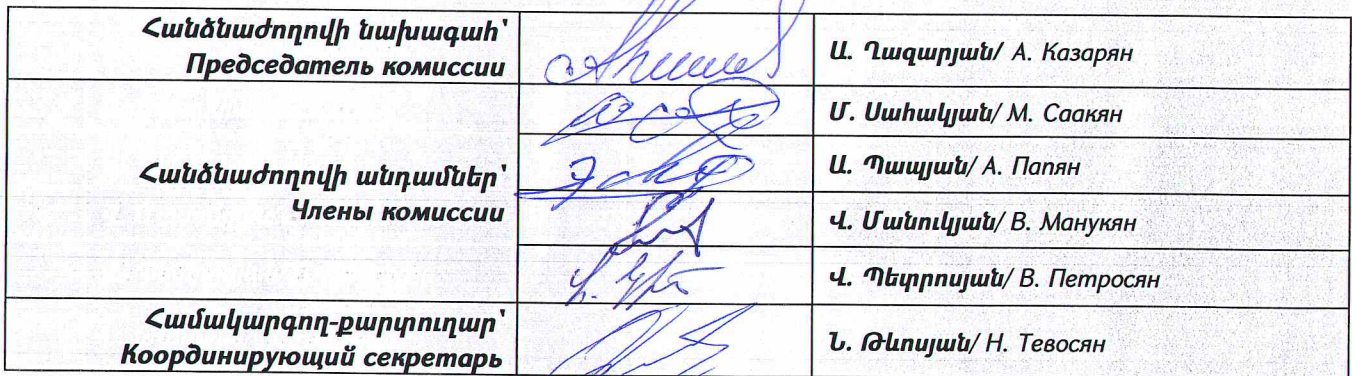 Հանձնաժողովի նախագահ՝
Председатель комиссии
Ա. Ղազարյան/ А. Казарян
Մ. Սահակյան/ М. Саакян
Հանձնաժողովի անդամներ՝
Члены комиссии
Ա. Պապյան/ А. Папян
Վ. Մանուկյան/ В. Манукян
Վ. Պետրոսյան/ В. Петросян
Համակարգող-քարտուղար՝
Координирующий секретарь
Ն. Թևոսյան/ Н. Тевосян